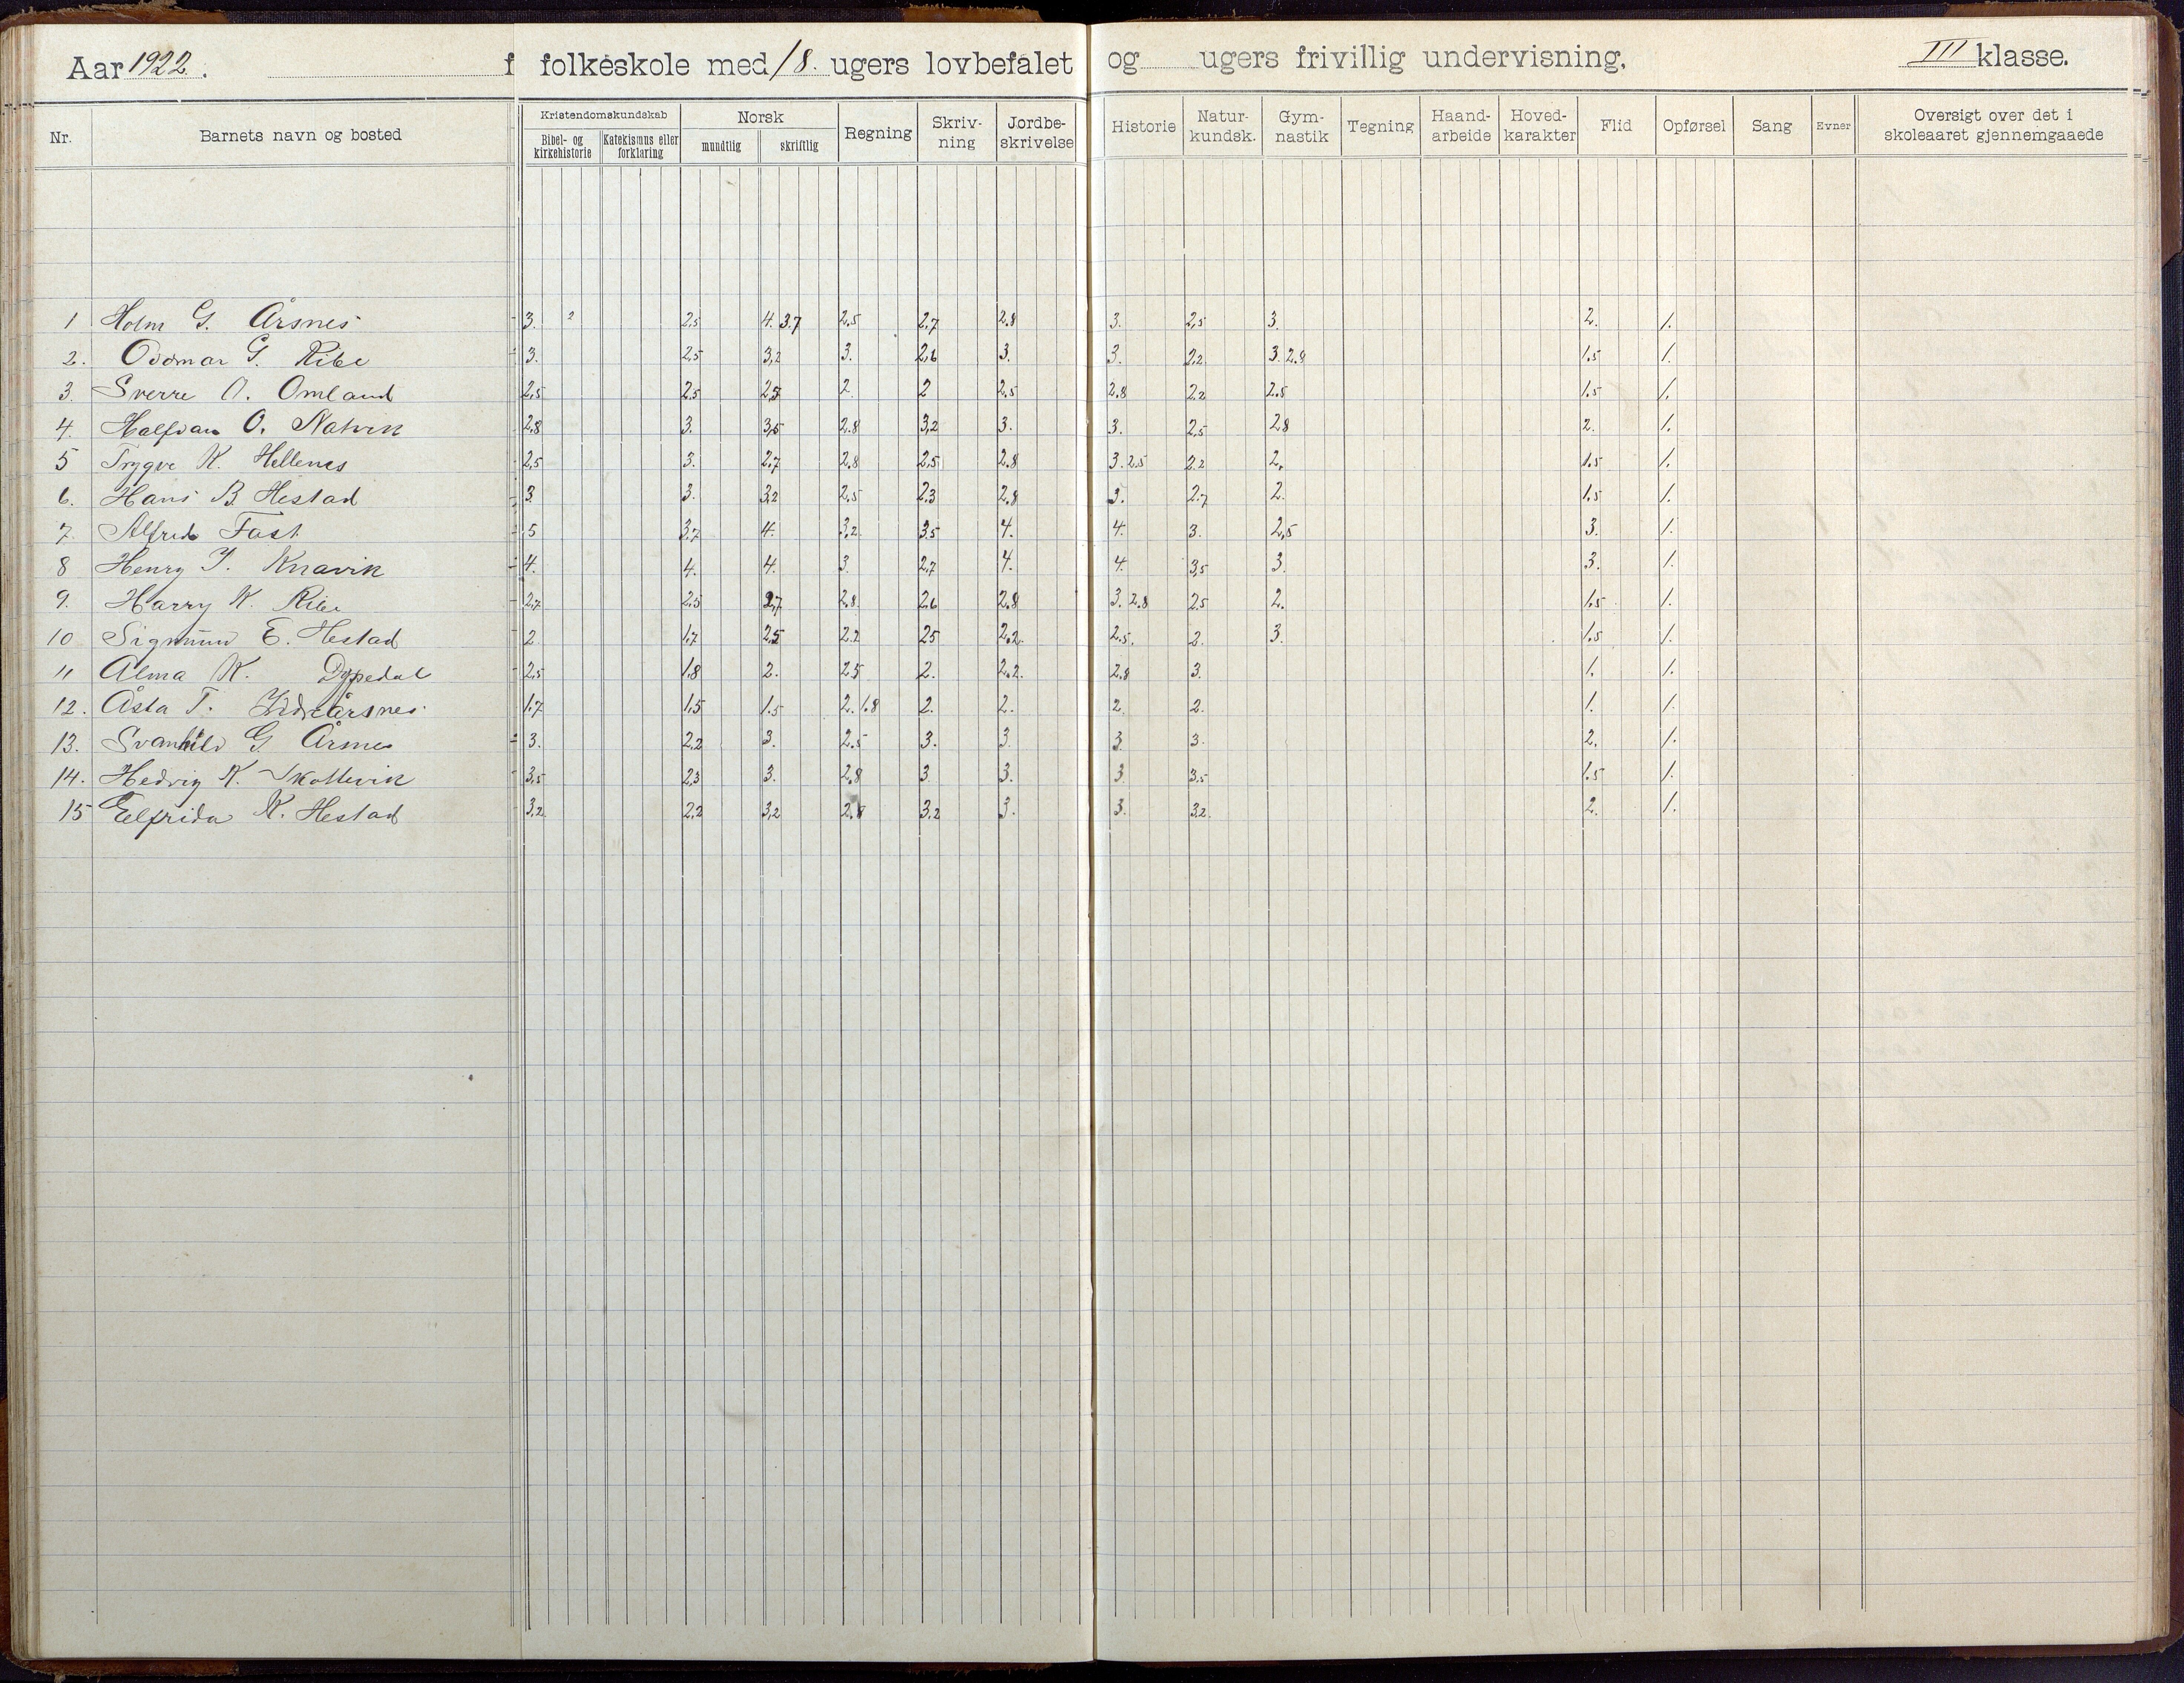 Aar 1922. f folkeskole med 18. ugers lovbefalet og ugers frivillig undervisning. III klasse.
Nr. Barnets navn og bosted Kristendomskundskab Bibel- og kirkehistorie Katekismus eller forklaring Norsk mundtlig skriftlig Regning Skriv-ning Jordbe-skrivelse Historie Natur-kundsk. Gym-nastik Tegning Haand-arbeide Hoved-karakter Flid Opførsel Sang Evner Oversigt over det i skoleaaret gjennemgaaede
1 Holm G. Årsnes 3. 2 2,5 4. 3.7 2,5 2,7 2,8 3. 2,5 3. 2. 1.
2. Oddmar G. Ribe 3. 2,5 3,2 3. 2,6 3. 3. 2,2 3. 2.8 1.5 1.
3. Sverre A. Omland 2,5 2,5 2,5 2 2 2,5 2.8 2.2 2.5 1.5 1.
4. Halfdan O. Natvik 2,8 3. 3,5 2.8 3,2 3. 3. 2,5 2,8 2. 1.
5 Trygve K. Hellenes 2,5 3. 2,7 2,8 2,5 2,8 3. 2.5 2.2 2. 1.5 1.
6. Hans B. Hestad 3 3. 3,2 2,5 2,3 2,8 3. 2,7 2. 1,5 1.
7. Alfred Fast 5 3,7 4. 3,2 3,5 4. 4. 3. 2,5 3. 1.
8 Henry J. Knavik 4. 4. 4. 3. 2,7 4. 4. 3,5 3. 3. 1.
9. Harry K. Ribe 2,7 2,5 2,7 2,8 2,6 2,8 3. 2.8 2,5 2. 1.5 1.
10 Sigmund E. Hestad 2. 1,7 2,5 2.2 2,5 2,2. 2.5. 2. 3. 1,5 1.
11 Alma K. Dypedal 2,5 1,8 2. 2,5 2. 2.2. 2,8 3. 1. 1.
12. Åsta T. Årsnes. 1.7 1,5 1.5 2. 1.8 2. 2. 2. 2. 1. 1.
13. Svanhild G. Årsnes 3. 2,2 3. 2.5 3. 3. 3 3. 2. 1.
14. Hedvig K. Skottevik 3,5 2,3 3. 2,8 3 3. 3 3.5 1.5 1.
15 Elfrida K. Hestad 3,2 2,2 3,2 2,8 3,2 3. 3. 3.2. 2. 1.